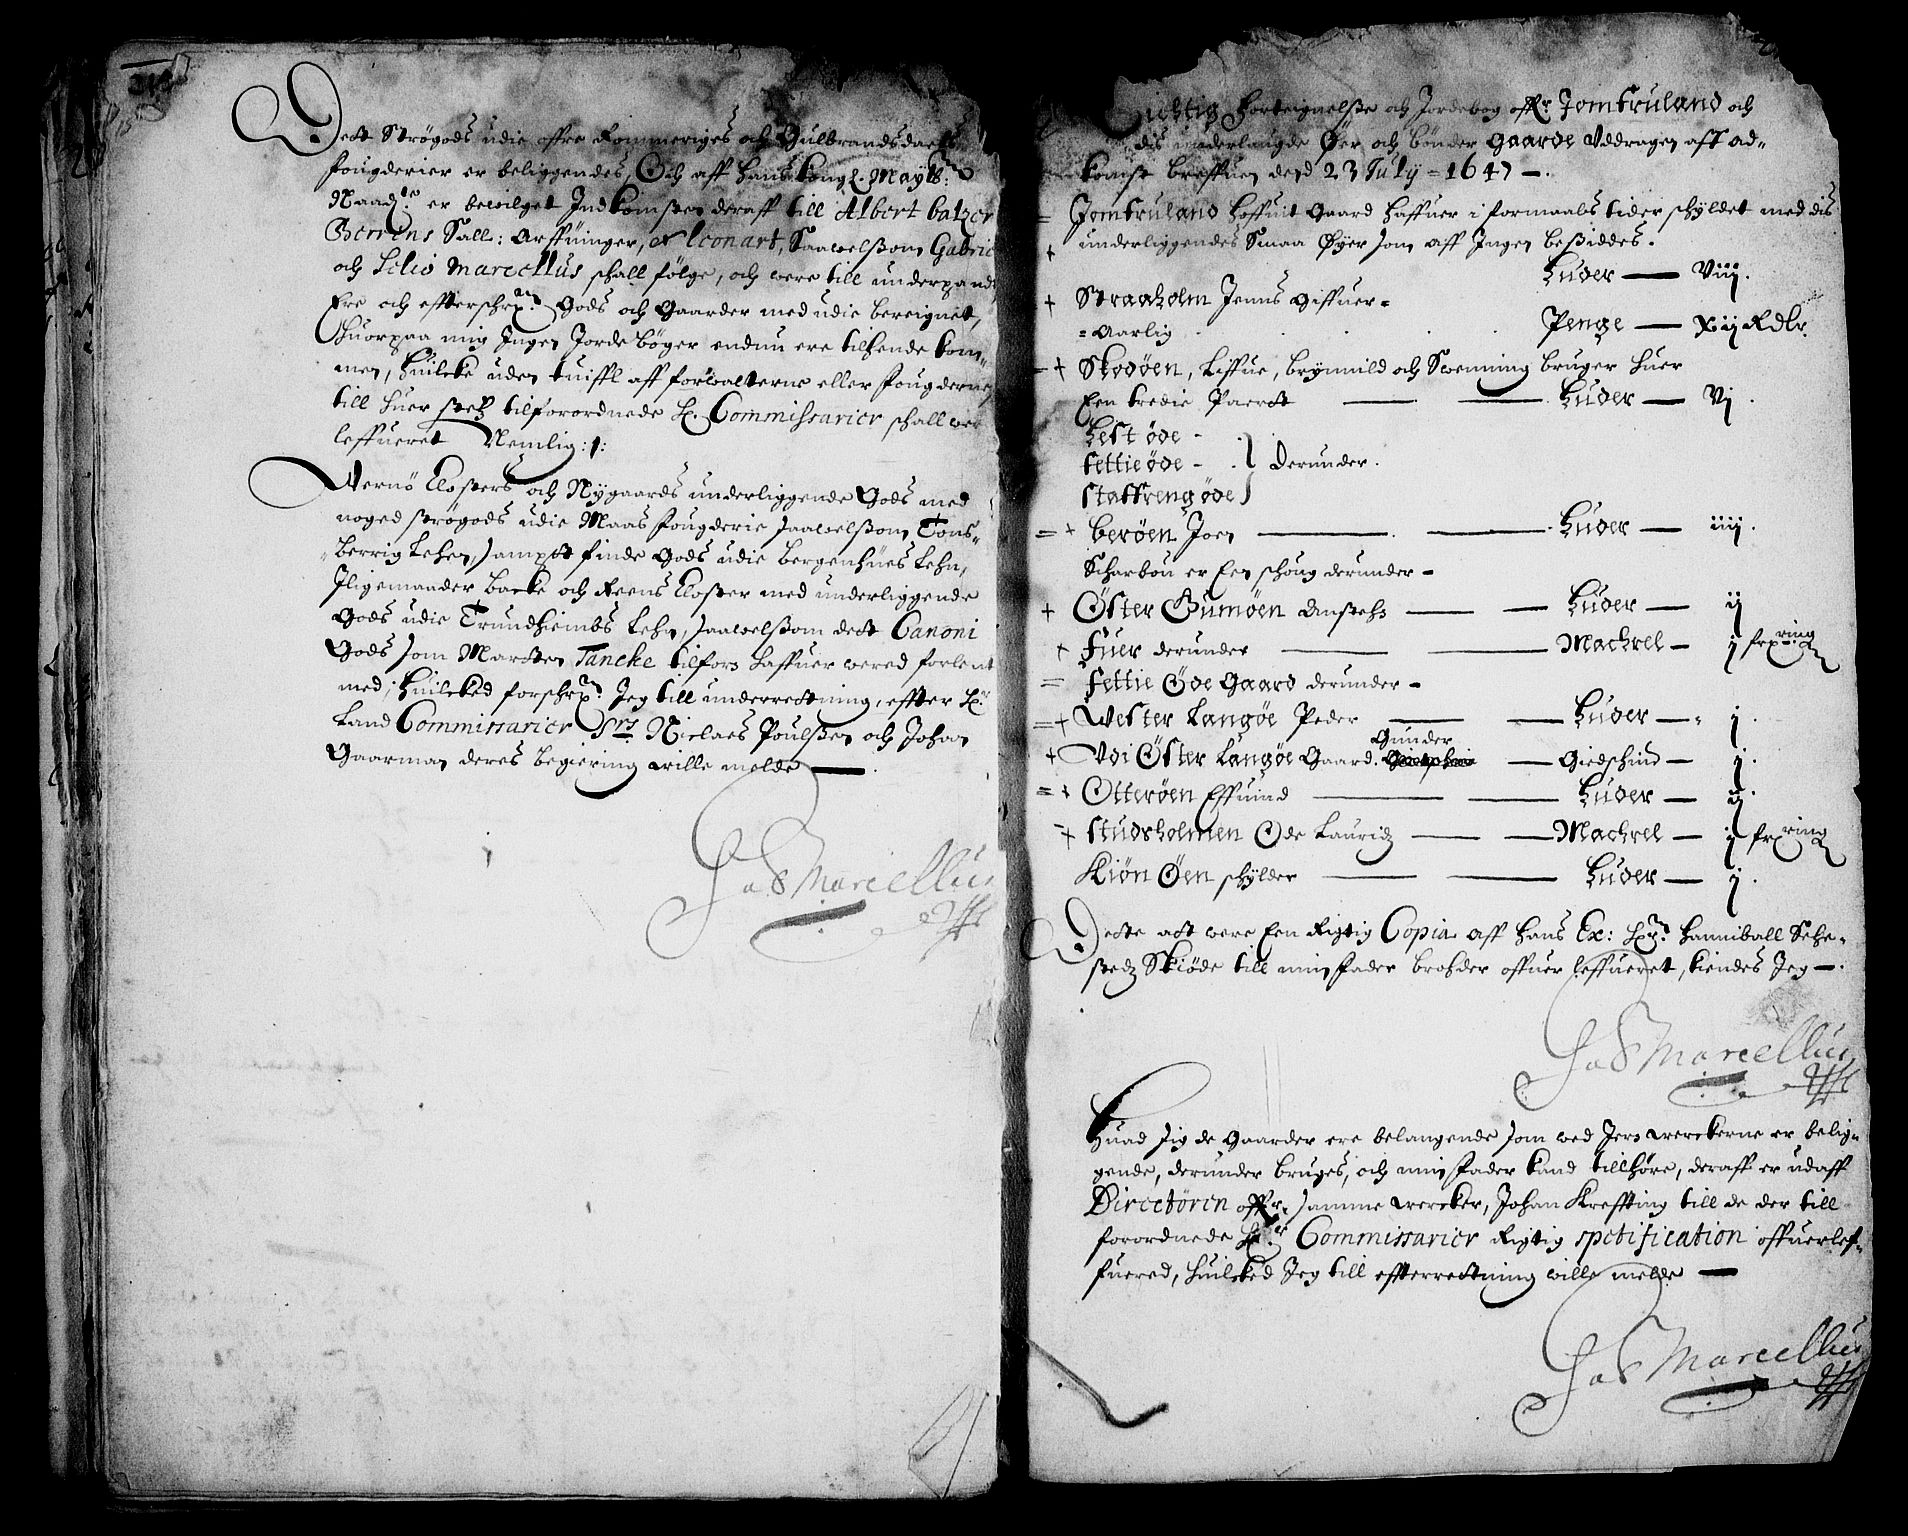 Dett Strögods udie offre Rommeriges och Gulbrandsdaels
fougderier er beliggendes, Och aff Hans Kongl. Maytts:
Naade er bewilget Indkomsten deraff till Albert balzer
Berrens Sall: Arffuinger, et Leonart, Saawelsom Gabriel
och Selio Marcellus schall fölge, och were till underpandt
Ere och effterschreffne Gods och Gaarder med udie bereignet,
Huorpaa mig Ingen Jordebøger endnu ere tilhende kom-
men, Huilcke uden tuiffl aff forwalterne eller fougderne
till huer stetz tilforordnede H. Commissarier schall were
leffueret Nemlig:
Wernö Closters och Nygaards underliggende Gods med
noged strögods udie Maas fougderie saawelsom Tons-
Berrig Lehen, sampt finde Gods udie Bergenhues Lehn,
Iligemaader Backe och Reens Closter med underliggende
Gods udie Trundhiembs Lehn, saawelsom dett Canoni
Gods som Marten Tancke tilforn haffuer wered forlent
med, Huilcked forschreffne Jeg till underrettning, effter H.
Land Commissarier Srs Niclaes Poulsen och Johan
Gaarman deres begiering wille melde
Marcellus
Richtig Forteignelsse och Jordebog offr Jomfruland och
dis underlaugde Øer och bönder Gaarde Uddragen aff ad-
komst breffuen dend 23 July = 1647
Jomfruland Hoffuit Gaard haffuer i formaals tider schyldet med dis
underliggendes Smaa Øyer som aff Ingen besiddes.
Huder — Viij.
Straaholm Jenns Giffuer
Aarlig . . . Penge — xij Rdlr.
Skodöen, Liffue, Brynnild och Swenning bruger huer
Een tredie Paertt — Huder — Vj .
Hest öde -
fettie öde - } derunder.
staffreng öde
Beröen Joen — Huder — iiij.
Scharbou er Een schoug derunder
Öster Gumöen — Huder — ij
Fuer derunder — Machrel — j frxring
fettie Öde Gaard derunder
Wester Langöe Peder — Huder — j.
Vdi Öster Langöe Gaard. Gunder — Giedschind — j.
Otteröen Effuind — Huder — ij.
Studsholmen Öde Lauridz — Machrel — j frxring
Kiön Öen schylder — Huder — j.
Dette att were Een Rigtig Copia aff Hans Ex: Hr. Hanniball Sehe-
stedz Skiöde till min fader broder offuer leffueret, kiendes Jeg
Marcellus
Huad sig de Gaarder ere belangende som wed Jern wercherne er belig-
gende, derunder bruges, och min fader kand tillhöre, deraff er udaff
Directören offr samme wercker, Johan Kreffting till de der till
forordnede Hr. Commissarier Rigtig spetification offuerlef-
fuered, huilcked Jeg till effterrettning wille melde
Marcellus